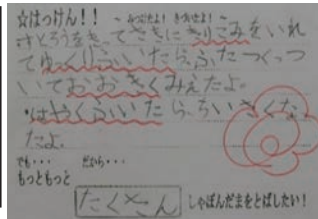 ☆はっけん!!
みつけたよ! きづいたよ!
すとろうをきってさきにきりこみをいれ
てゆっくりふいたら、ふたつくっつ
いておおきくみえたよ。
・はやくふいたら、ちいさくなっ
たよ。
でも・・・ だから・・・
もっともっと
たくさん しゃぼんだまをとばしたい!